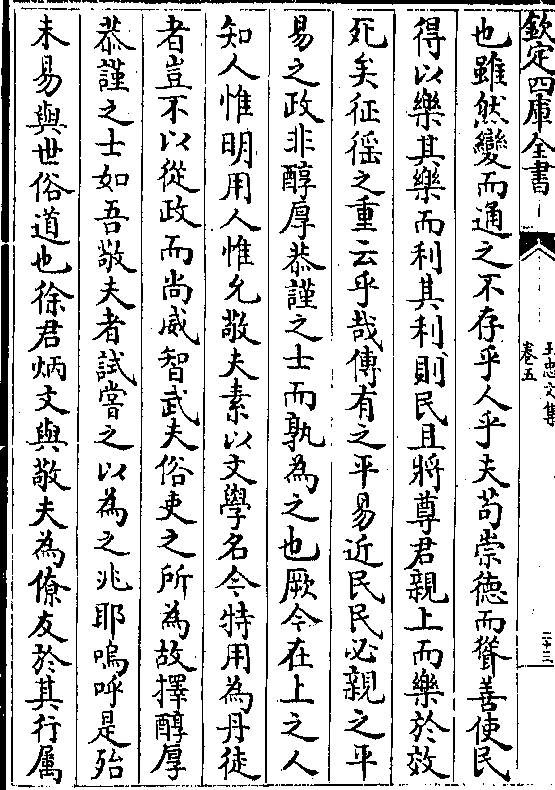 欽定四庫全書
王忠文集
卷五
二十三
也雖然變而通之不存乎人乎夫苟崇德而聳善使民
得以樂其樂而利其利則民且將尊君親上而樂於效
死矣征徭之重云乎哉傳有之平易近民民必親之平
易之政非醇厚恭謹之士而孰為之也厥今在上之人
知人惟明用人惟允敬夫素以文學名今特用為丹徒
者豈不以從政而尚威智武夫俗吏之所為故擇醇厚
恭謹之士如吾敬夫者試嘗之以為之兆耶嗚呼是殆
未易與世俗道也徐君炳文與敬夫為僚友於其行属